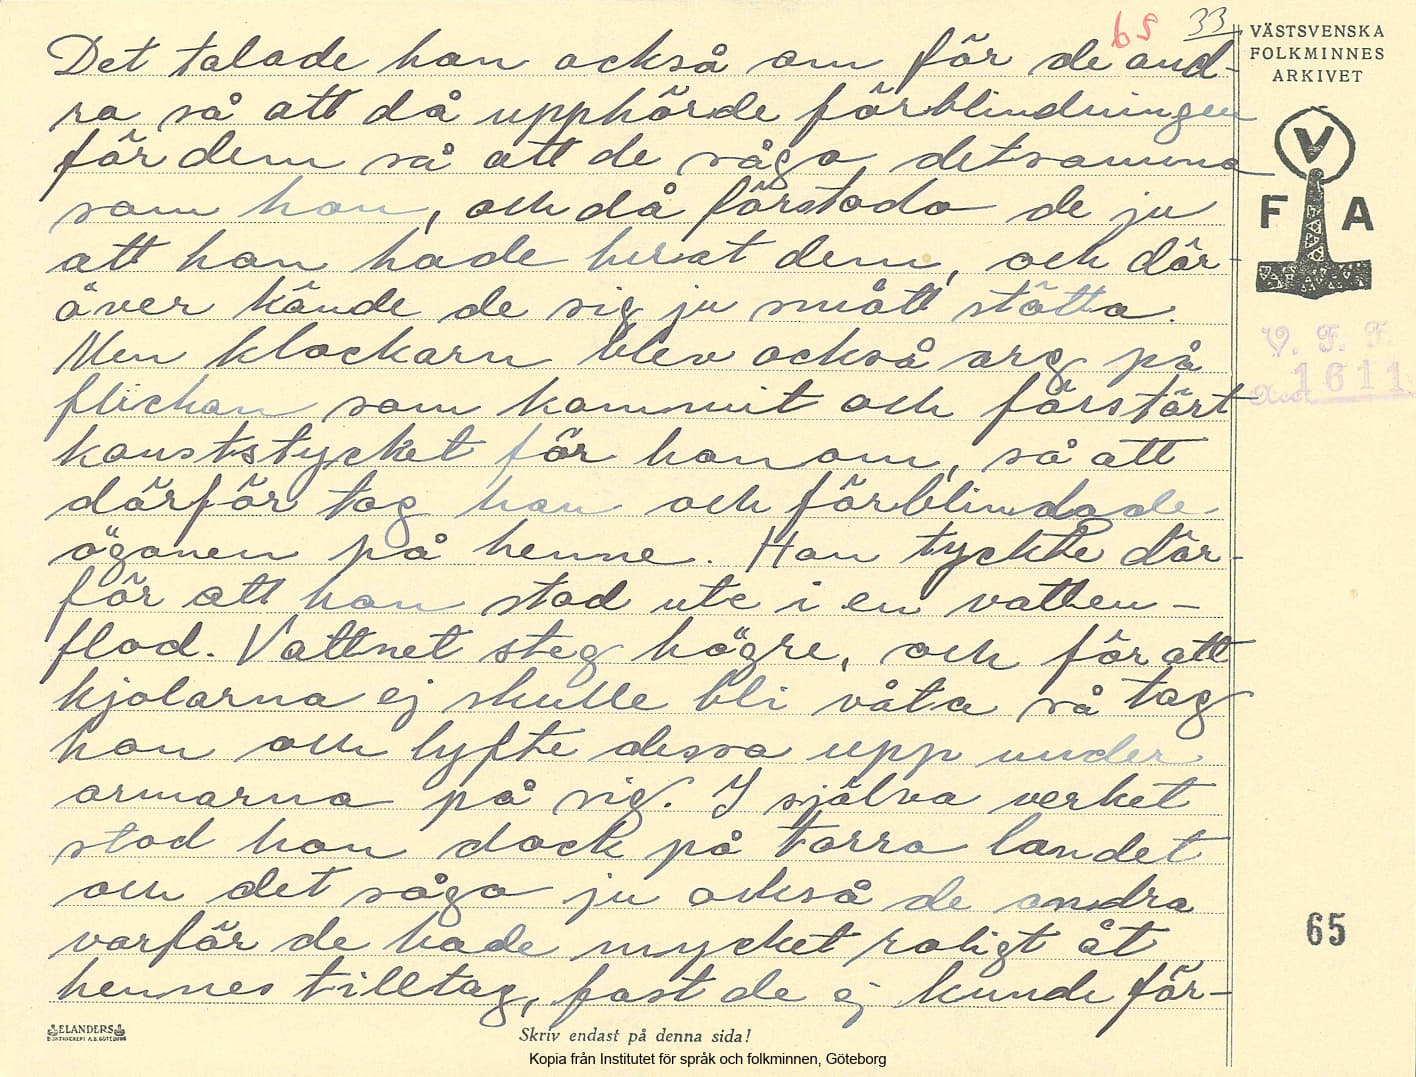 65 33
VÄSTSVENSKA
FOLKMINNES
ARKIVET
V
F A
V. F. F.
Acc. 1611
Det talade hon också om för de and-
ra så att då upphörde förblindningen
för dem så att de sågo detsamma
som hon, och då förstodo de ju
att han hade lurat dem, och där-
över kände de sig ju smått stötta.
Men klockarn blev också arg på
flickan som kommit och förstört
konststycket för honom, så att
därför tog han och förblindade
ögonen på henne. Hon tyckte där-
för att hon stod ute i en vatten-
flod. Vattnet steg högre, och för att
kjolarna ej skulle bli våta så tog
hon och lyfte dessa upp under
armarna på sig. I själva verket
stod hon dock på torra landet
och det sågo ju också de andra
varför de hade mycket roligt åt
hennes tilltag, fast de ej kunde för-
65
ELANDERS
BOKTRYCKERI A.B. GÖTEBORG
Skriv endast på denna sida!
Kopia från Institutet för språk och folkminnen, Göteborg